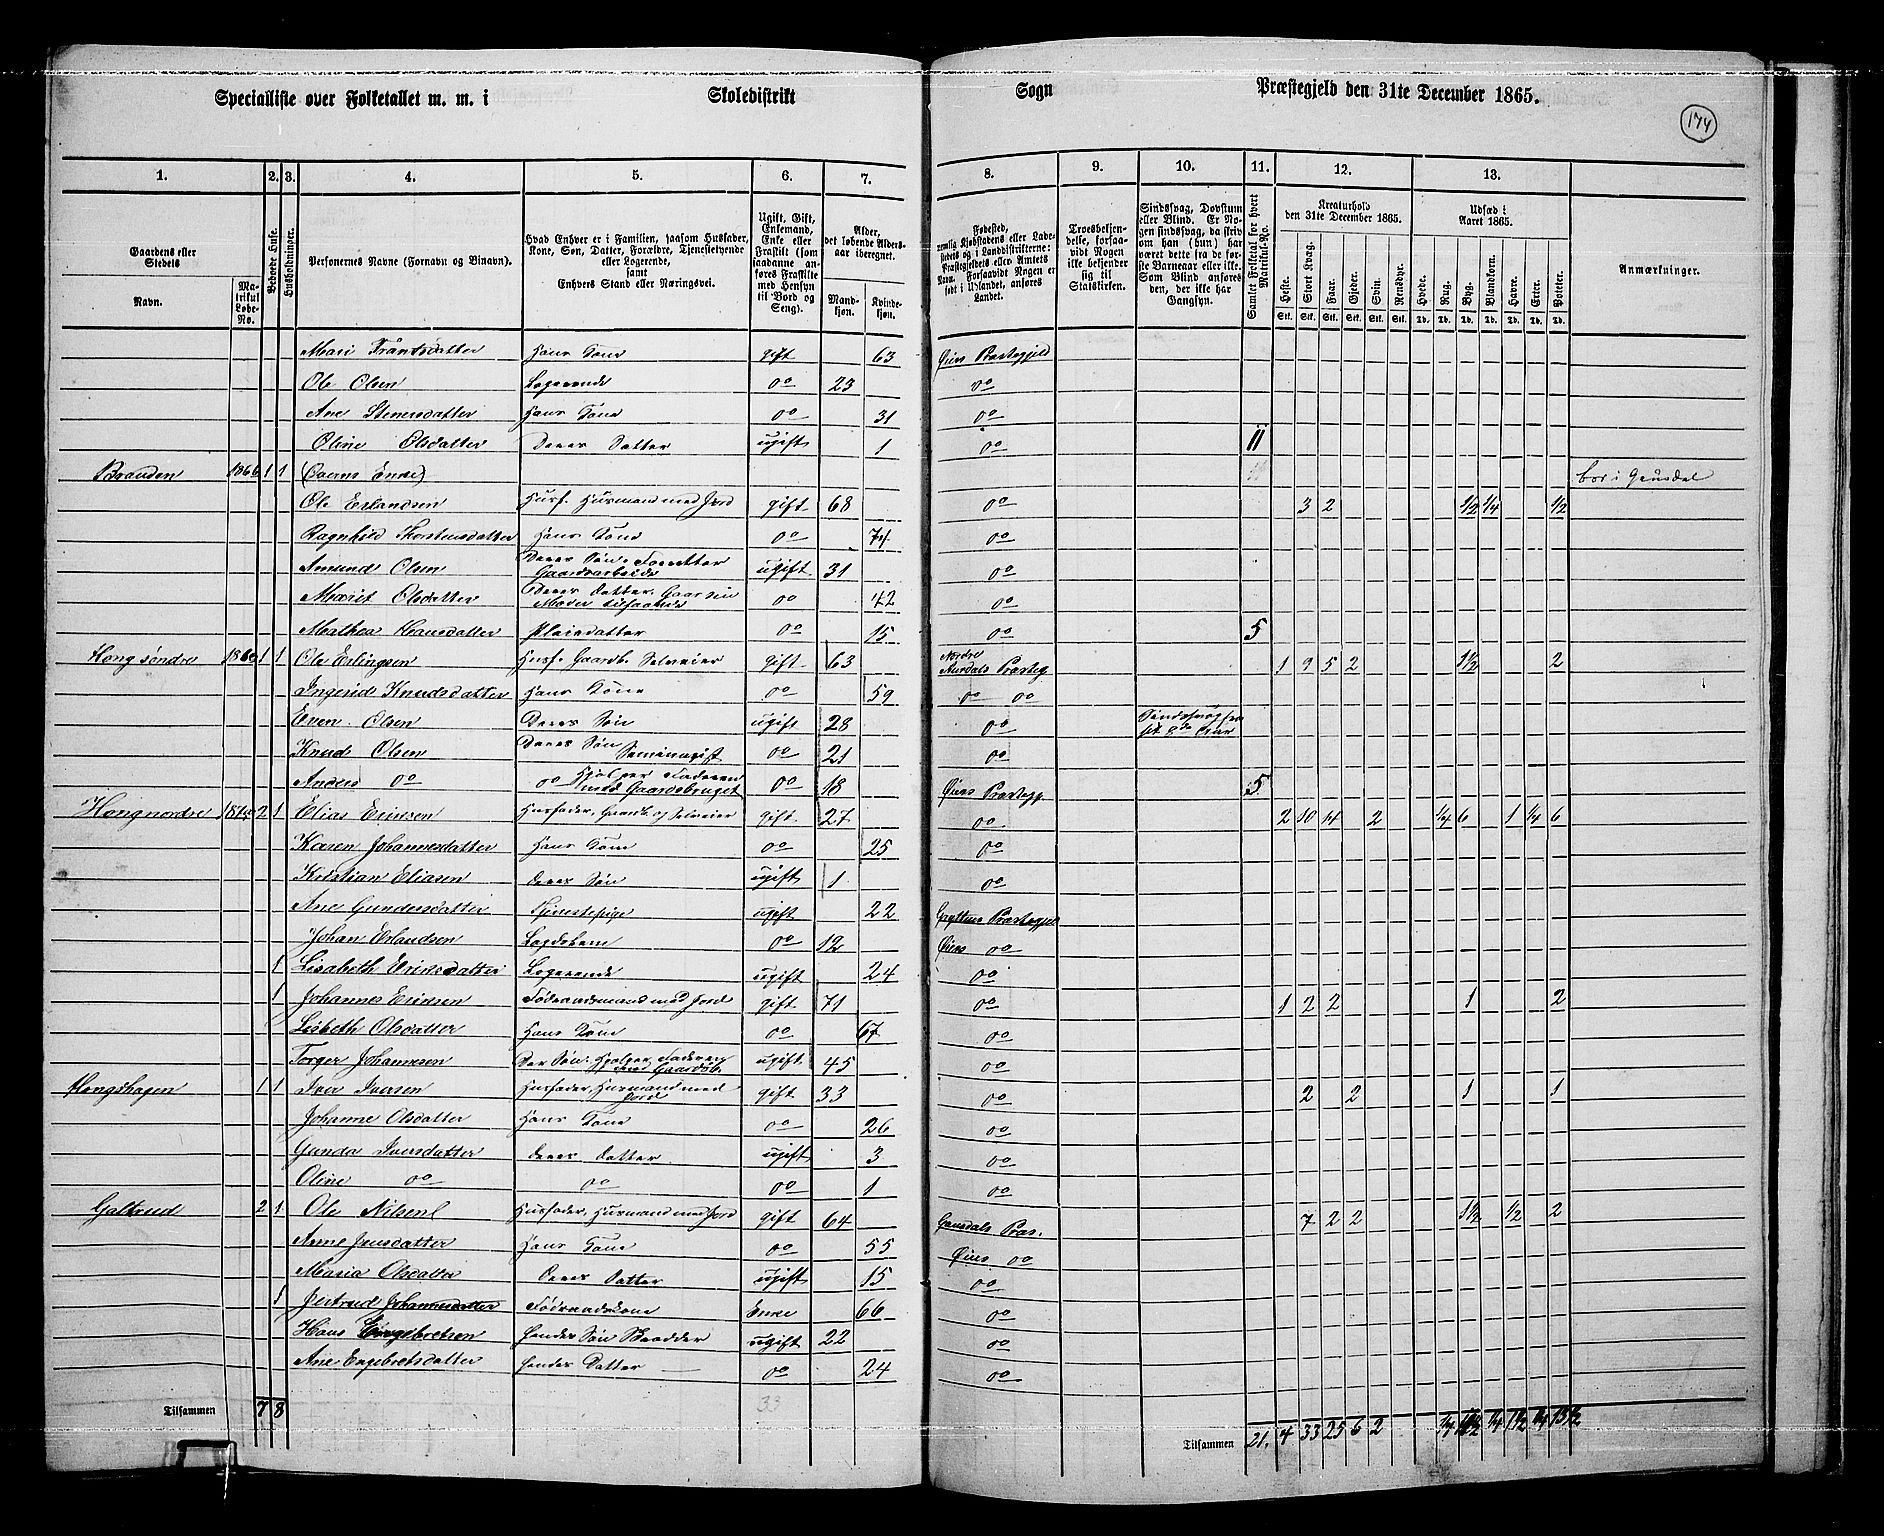 Specialliste over Folketallet m. m. i Skoledistrikt Sogn Præstegjeld den 31te December 1865.
174
1. 2. 3. 4. 5. 6. 7. 8. 9. 10. 11. 12. 13.
Gaardens eller Stedets
Navn.
Matrikul Løbe-No.
Beboede Huse.
Husholdninger.
Personernes Navne (Fornavn og Binavn).
Hvad Enhver er i Familien, saasom Husfader, Kone, Søn, Datter, Forældre, Tjenestetyende eller Logerende,
samt
Enhvers Stand eller Næringsvei.
Ugift, Gift, Enkemand, Enke eller Fraskilt (som saadanne anføres Fraskilte med Hensyn til Bord og Seng).
Alder, det løbende Aldersaar iberegnet.
Mandkjøn. Kvindekjøn.
Fødested,
Troesbekjendelse, forsaavidt Nogen ikke bekjender sig til Statskirken.
Sindssvag, Døvstum eller Blind. Er Nogen sindssvag, da skriv om han (hun) har været dette fra de første Barneaar eller ikke. Som Blind anføres den, der ikke har Gangsyn.
Samlet Folketal for hvert Matrikul-No.
Kreaturhold den 31te December 1865.
Heste. Stort Kvæg. Faar. Gjeder. Svin. Rensdyr.
Udsæd i Aaret 1865.
Hvede. Rug. Byg. Blandkorn. Havre. Erter. Poteter.
Anmærkninger.
Mari Frantsdatter Hans Kone gift 63 Øiers Præstegjeld
Ole Olsen Logerende do 23 do
Ane Stenersdatter Hans Kone do 31 do
Oline Olsdatter Deres Datter ugift 1 do 11
Branden 186b 1 1 bor i Gausdal
Ole Erlandsen Husf. Husmand med Jord gift 68 do 3 2 1/2 1/4 1/2
Ragnhild Thorstensdatter Hans Kone do 74 do
Amund Olsen ugift 31 do
Gaardsarbeide
Marit Olsdatter do 42 do
Mathea Hansdatter Pleiedatter do 15 do 5
Hong søndre 1 1 Ole Erlingsen Husf. Gaardb. Selveier gift 63 Nordre Aurdals Præsteg 1 9 5 2 1 1/2 2
Ingerid Knudsdatter Hans Kone do 59 do do
Even Olsen Deres Søn ugift 28 do
Knud Olsen Deres Søn Seminarist do 21 do
Anders do do Hjelper Faderen med Gaardsbruget do 18 Øiers Præstegj 5
Hong nordre 2 1 Elias Erichsen Husfader, Gaardb. og Selveier gift 27 do 2 10 14 2 1/4 6 1 1/4 6
Karen Johannesdatter Hans Kone do 25 do
Kristian Eliasen deres Søn ugift 1 do
Ane Gundersdatter Tjenestepige ugift 22 Præstegjel
Johan Erlandsen Lægdsbarn do 12 Øiers do
1 Lisabeth Logerende ugift 24 do
1 Johannes Føderaadsmand med Jord gift 71 do 1 2 2 1 2
Lisbeth Olsdatter Hans Kone do 67 do
Torger Johannesen Der Søn: Hjelper Faderen med Gaardsb. ugift 45 do
Hongshagen 1 1 Iver Iversen Husfader, Husmand med Jord gift 33 do 2 2 1 1
Johanne Olsdatter Hans Kone do 26 do
Gunda Iversdatter deres Datter ugift 3 do
Oline do do do 1 do
Galtrud 2 1 Ole Nilsen Husfader, Husmand med Jord gift 64 Gausdals Præs. 7 2 2 1 1/2 1/2 2
Anne Jensdatter Hans Kone do 55 Øiers do
Maria Olsdatter Deres Datter ugift 15 do
1 Jertrud Johannesdatter Føderaadskone Enke 66 do
Hans Engebretsen hendes Søn Skrædder ugift 22 do
Ane Engebretsdatter hendes Datter do 24 do
Tilsammen 7 8 33
Tilsammen 21. 4 33 25 6 2 1/4 1/4 1 1/2 1/4 13 1/2